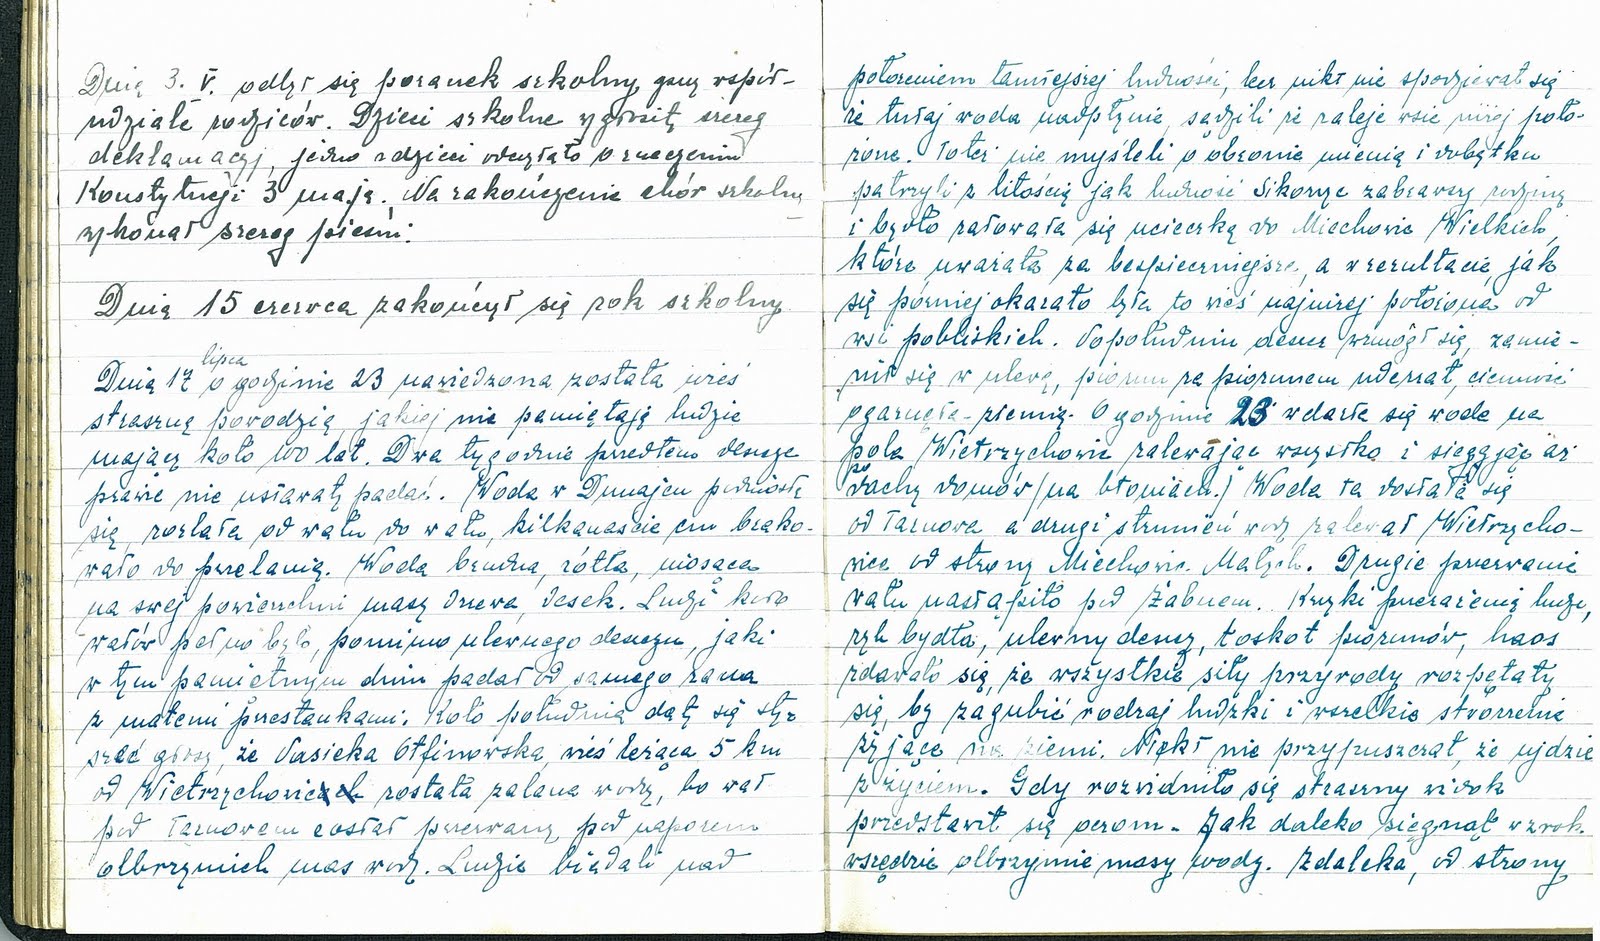 Dnia 3. V. odbył się poranek szkolny przy współ-
udziale rodziców. Dzieci szkolne wygłosiły szereg
deklamacyj, jedno z dzieci odczytało o znaczeniu
Konstytucji 3 maja. Na zakończenie chór szkolny
wykonał szereg pieśni.
Dnia 15 czerwca zakończył się rok szkolny
lipca
Dnia 17 o godzinie 23 nawiedzona została wieś
straszną powodzią, jakiej nie pamiętają ludzie
mający koło 100 lat. Dwa tygodnie przedtem deszcze
prawie nie ustawały padać. Woda w Dunajcu podniosła
się, rozlała od wału do wału, kilkanaście cm brako-
wało do przelania. Woda brudna, żółta, niosąca
na swej powierzchni masy drzewa, desek. Ludzi koło
wałów pełno było, pomimo ulewnego deszczu, jaki
w tym pamiętnym dniu padał od samego rana
z małemi przestankami. Koło południa dały się sły-
szeć głosy, że Pasieka Otfinowska, wieś leżąca 5 km
od Wietrzychowic została zalana wodą, bo wał
pod Tarnowem został przerwany, pod naporem
olbrzymich mas wody. Ludzie biadali nad
położeniem tamtejszej ludności, lecz nikt nie spodziewał się
że tutaj woda nadpłynie, sądzili że zaleje wsie niżej poło-
żone. Toteż nie myśleli o obronie mienia i dobytku
patrzyli z litością jak ludność Sikorzyc zabrawszy rodziny
i bydło ratowała się ucieczką do Miechowic Wielkich,
które uważała za bezpieczniejsze, a w rezultacie, jak
się później okazało była to wieś najniżej położona od
wsi pobliskich. Popołudniu deszcz wzmógł się, zamie-
nił się w ulewę, piorun za piorunem uderzał, ciemność
ogarnęła ziemię. O godzinie 23 wdarła się woda na
pola Wietrzychowic zalewając wszystko i sięgając aż
po
dachy domów (na błoniach.) Woda ta dostała się
od Tarnowa a drugi strumień wody zalewał Wietrzycho-
wice od strony Miechowic Małych. Drugie przerwanie
wału nastąpiło pod Żabnem. Krzyki przerażenia ludzi,
ryk bydła, ulewny deszcz, łoskot piorunów, haos
zdawało się, że wszystkie siły przyrody rozpętały
się, by zagubić rodzaj ludzki i wszelkie stworzenie
żyjące na ziemi. Nikt nie przypuszczał, że ujdzie
z życiem. Gdy rozwidniło się straszny widok
przedstawił się oczom. Jak daleko sięgnął wzrok
wszędzie olbrzymie masy wody. Zdaleka, od strony